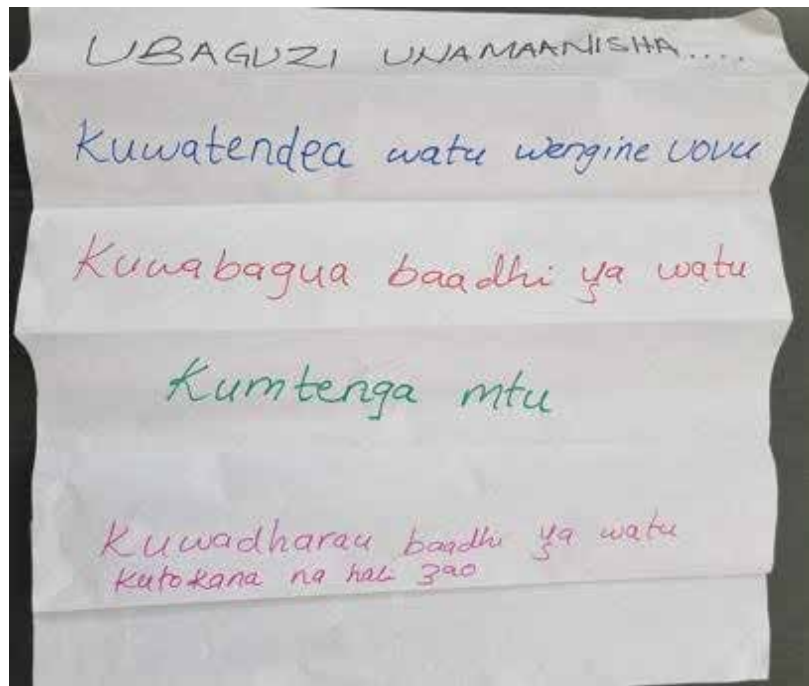 UBAGUZI UNAMAANISHA....
Kuwatendea watu wengine uovu
Kuwabagua baadhi ya watu
Kumtenga mtu
Kuwadharau baadhi ya watu
kutokana na hali zao